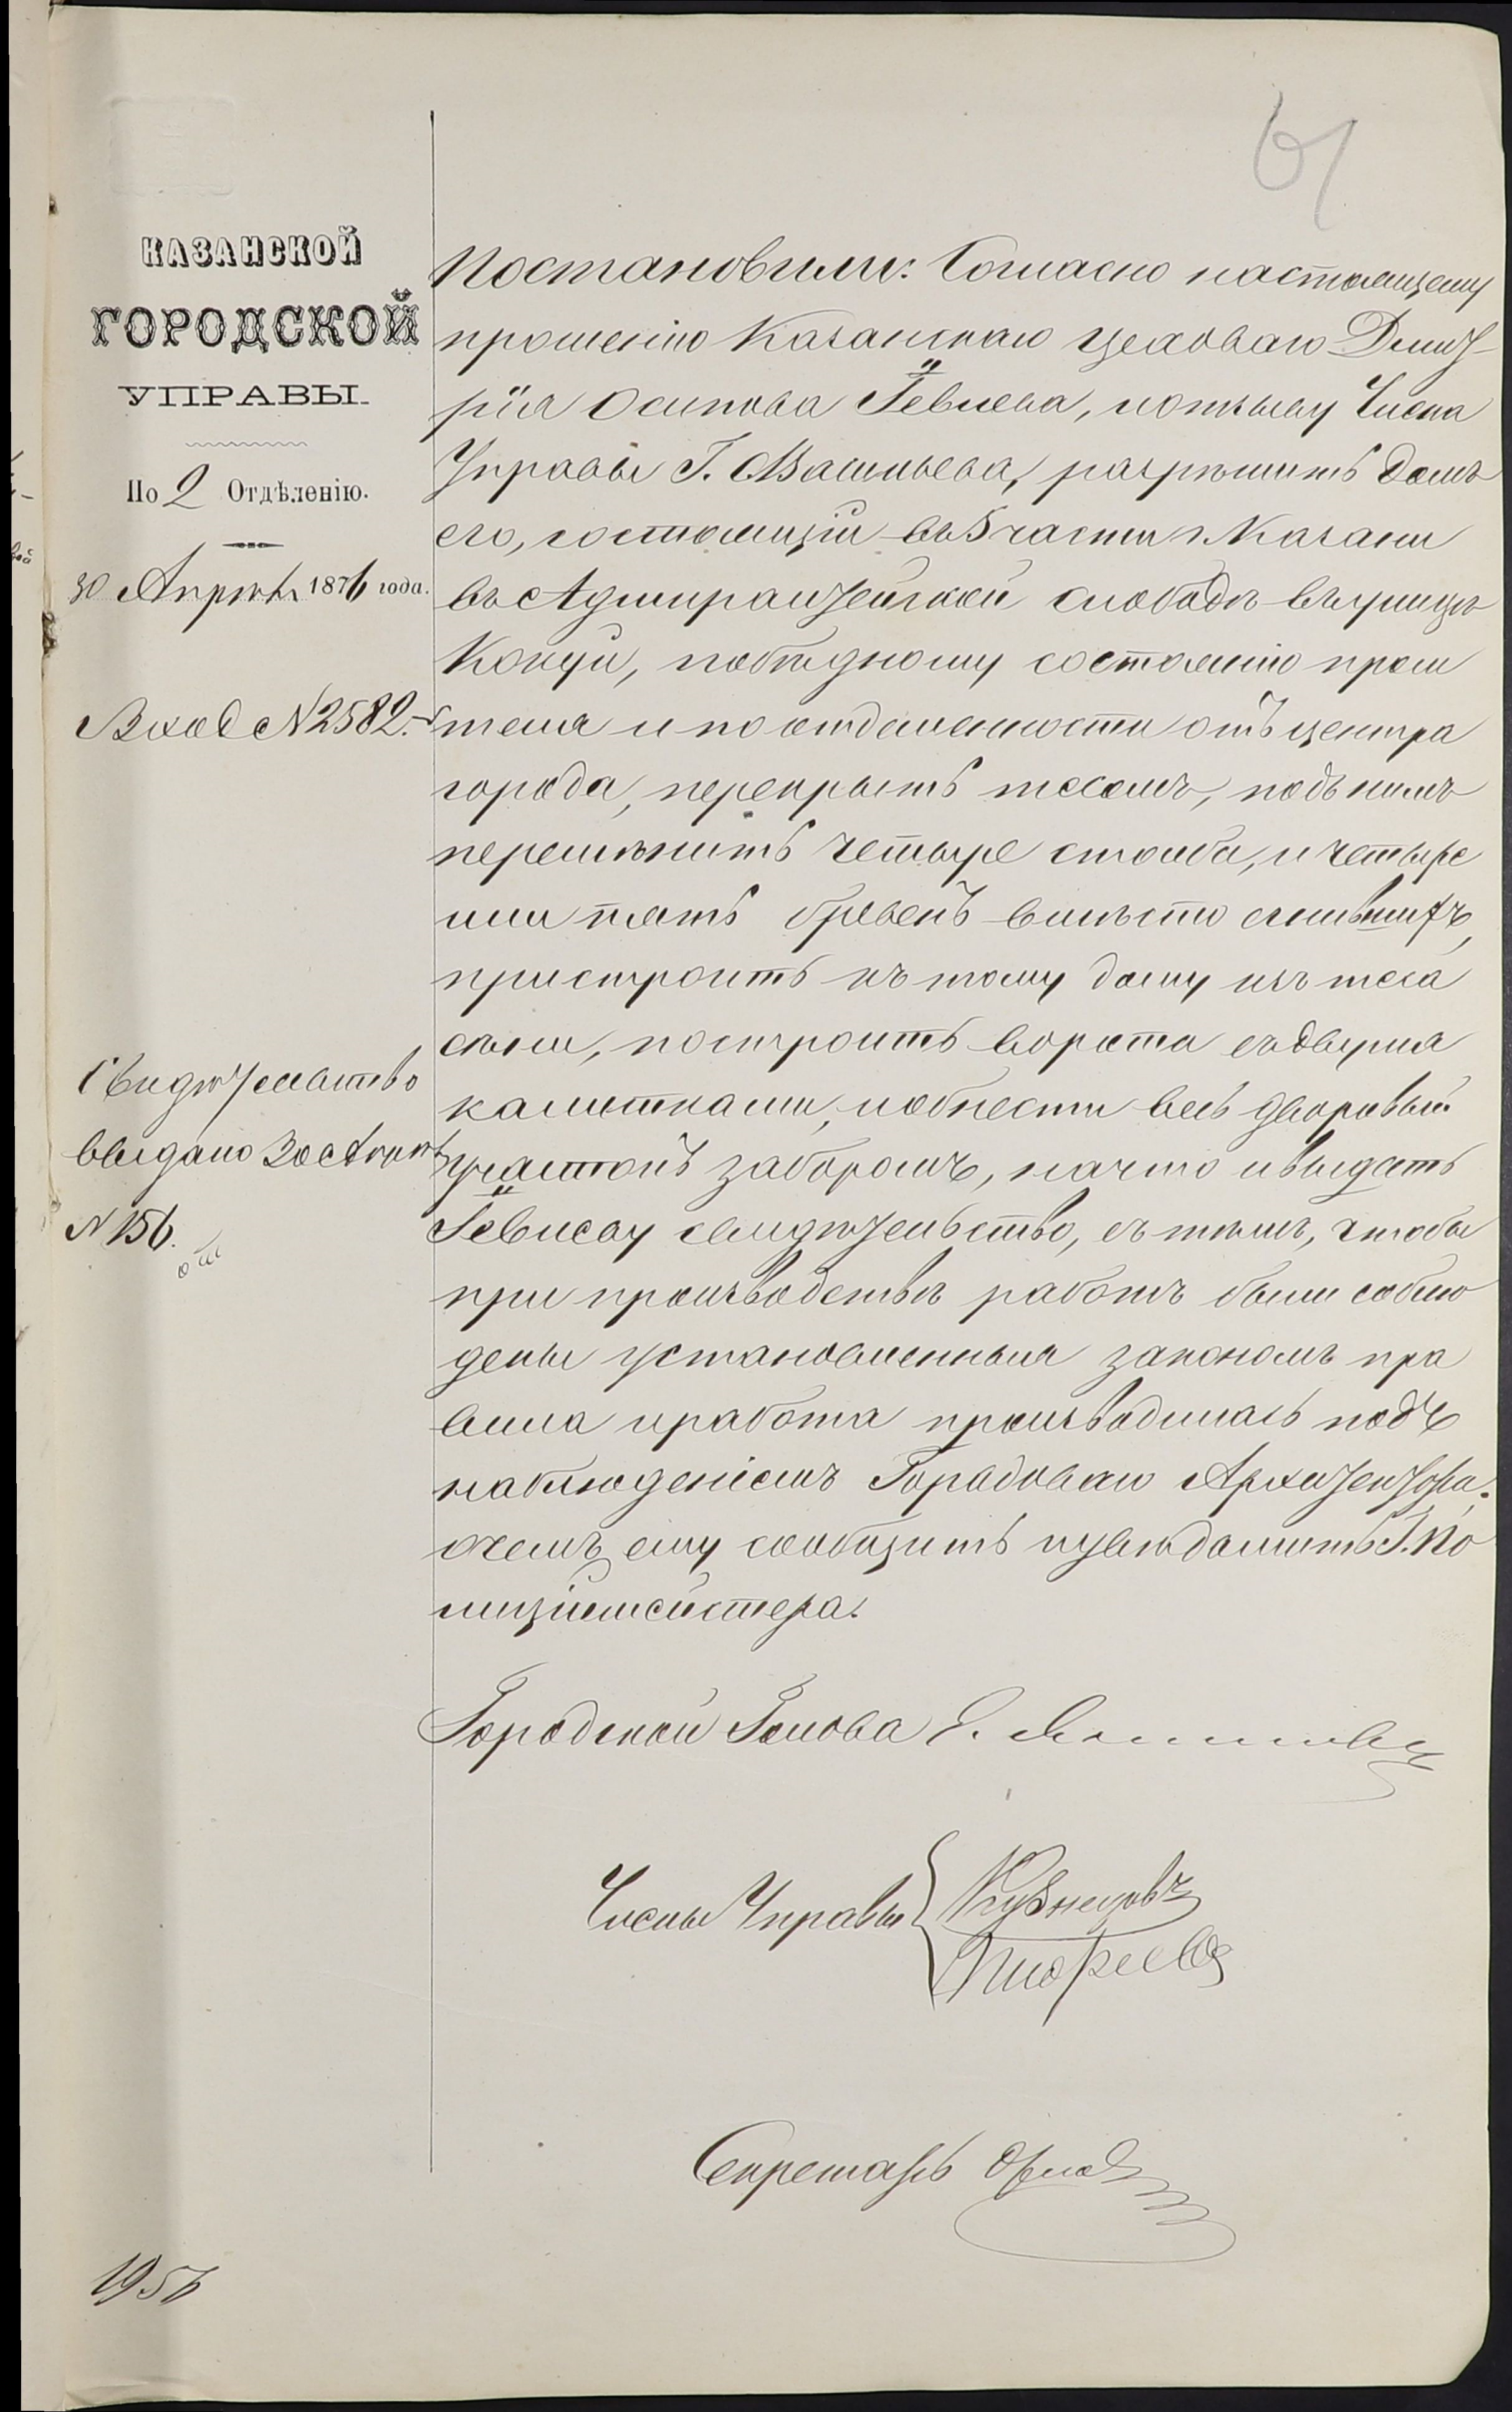 61
КАЗАНСКОЙ
ГОРОДСКОЙ
УПРАВЫ.
По 2 Отдѣленію.
30 Апрѣля 1876 года.
Вход №2582.
Свидѣтельство
выдано 30 Апрѣл
№ 156.
Постановили: Согласно настоящему
прошенію Казанскаго цеховаго Дмит-
рія Осипова Гевлева, и отзыву Члена
Управы Г. Васильева, разрѣшить домъ
его, состоящій въ 5 части г. Казани
въ Адмиралтейской слободѣ въ улицѣ
Кокуй, по бѣдному состоянію проси
теля и по отдаленности отъ центра
города, перекрыть тесомъ, подъ нимъ
перемѣнить четыре столба, и четыре
или пять бревенъ вмѣсто сгнившихъ,
пристроить къ тому дому изъ теса
сѣни, построить ворота съ двумя
калитками, и обнести весь дворовый
участокъ заборомъ, на что и выдать
Гевлеву свидѣтельство, съ тѣмъ, чтобы
при производствѣ работъ были соблю
дены установленныя закономъ пра
вила и работа производилась подъ
наблюденіемъ Городоваго Архитектора.
о чемъ ему сообщить и увѣдомить Г. По
лиціймейстера.
Городской Голова Е.
Члены Управы
Кузнецовъ
Секретарь
1956